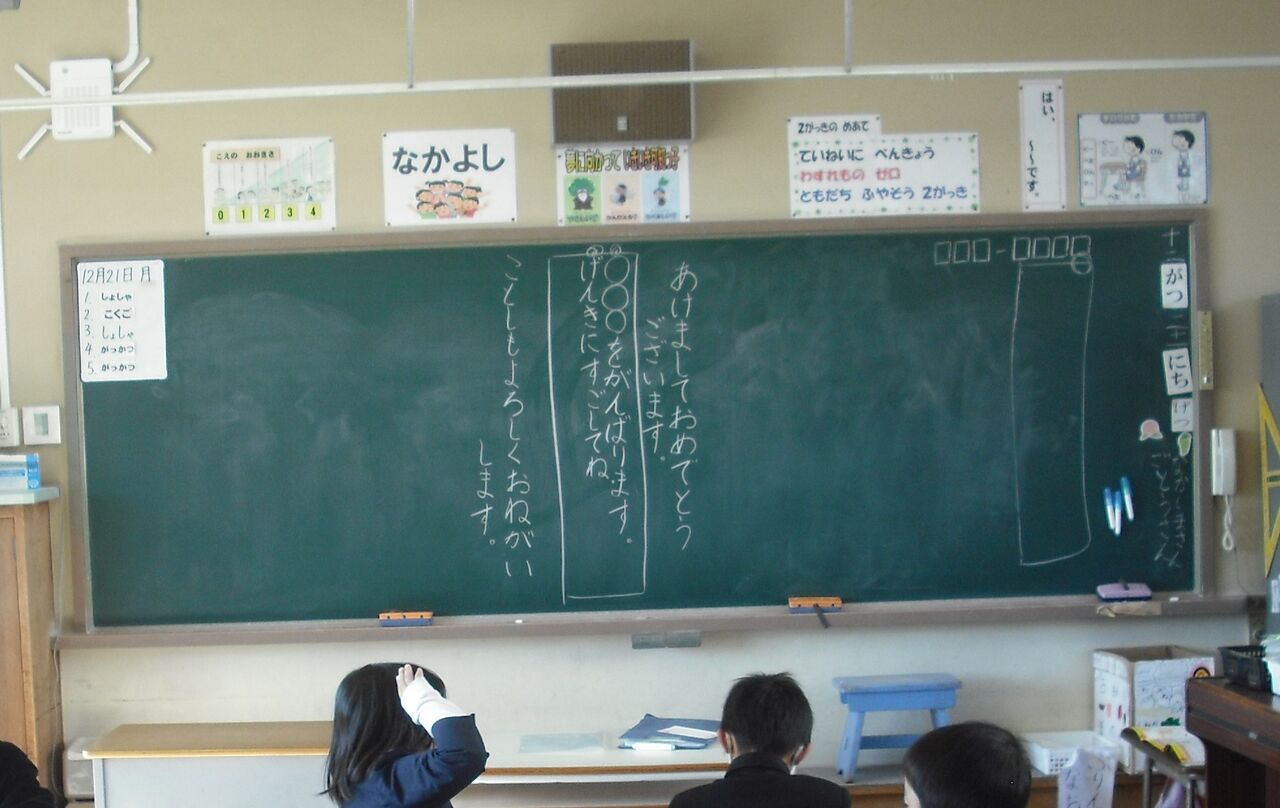 こえの おおきさ
0 1 2 3 4
なかよし
夢に向かって
2がっきの めあて
ていねいに べんきょう
わすれもの ゼロ
ともだち ふやそう 2がっき
はい、
～～です。
12月21日 月
1. しょしゃ
2. こくご
3. しょしゃ
4. がっかつ
5. がっかつ
十二
がつ
二十一
にち
げつ
□□□-□□□□
あけましておめでとう
ございます。
○○○をがんばります。
げんきにすごしてね
ことしもよろしくおねがい
します。